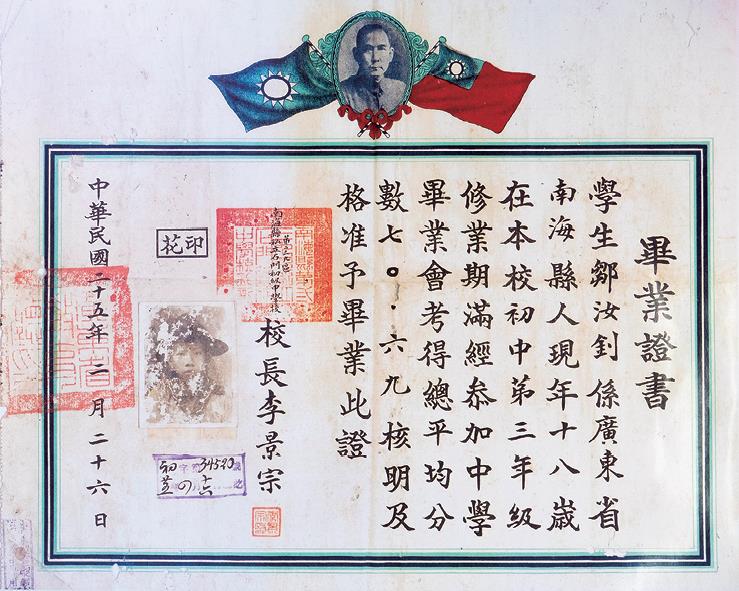 畢業證書
學生鄒汝釗係廣東省
南海縣人現年十八歲
在本校初中第三年級
修業期滿經叅加中學
畢業會考得總平均分
數七〇·六九核明及
格准予畢業此證
校長李景宗
印花
中華民國二十五年二月二十六日